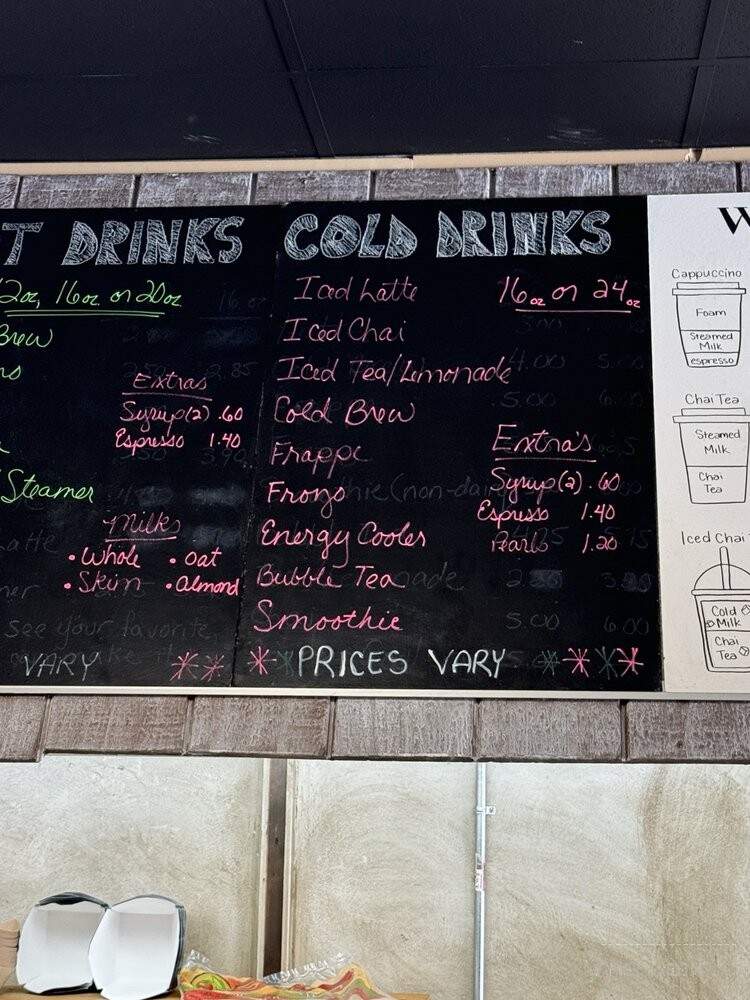 T DRINKS
2oz, 16oz or 20oz
Brew
Extras
Syrup(2) .60
Espresso 1.40
Steamer
Milks
• Whole • oat
• Skim • Almond
see your favorite
VARY **
COLD DRINKS
16oz or 24oz
Iced Latte
Iced Chai
Iced Tea/Limonade
Cold Brew
Frappe
Frozo
Energy Cooler
Bubble Tea
Smoothie
Extra's
Syrup(2) .60
Espresso 1.40
Pearls 1.20
* *PRICES VARY ****
W
Cappuccino
Foam
Steamed
Milk
espresso
Chai Tea
Steamed
Milk
Chai
Tea
Iced Chai
Cold
Milk
Chai
Tea